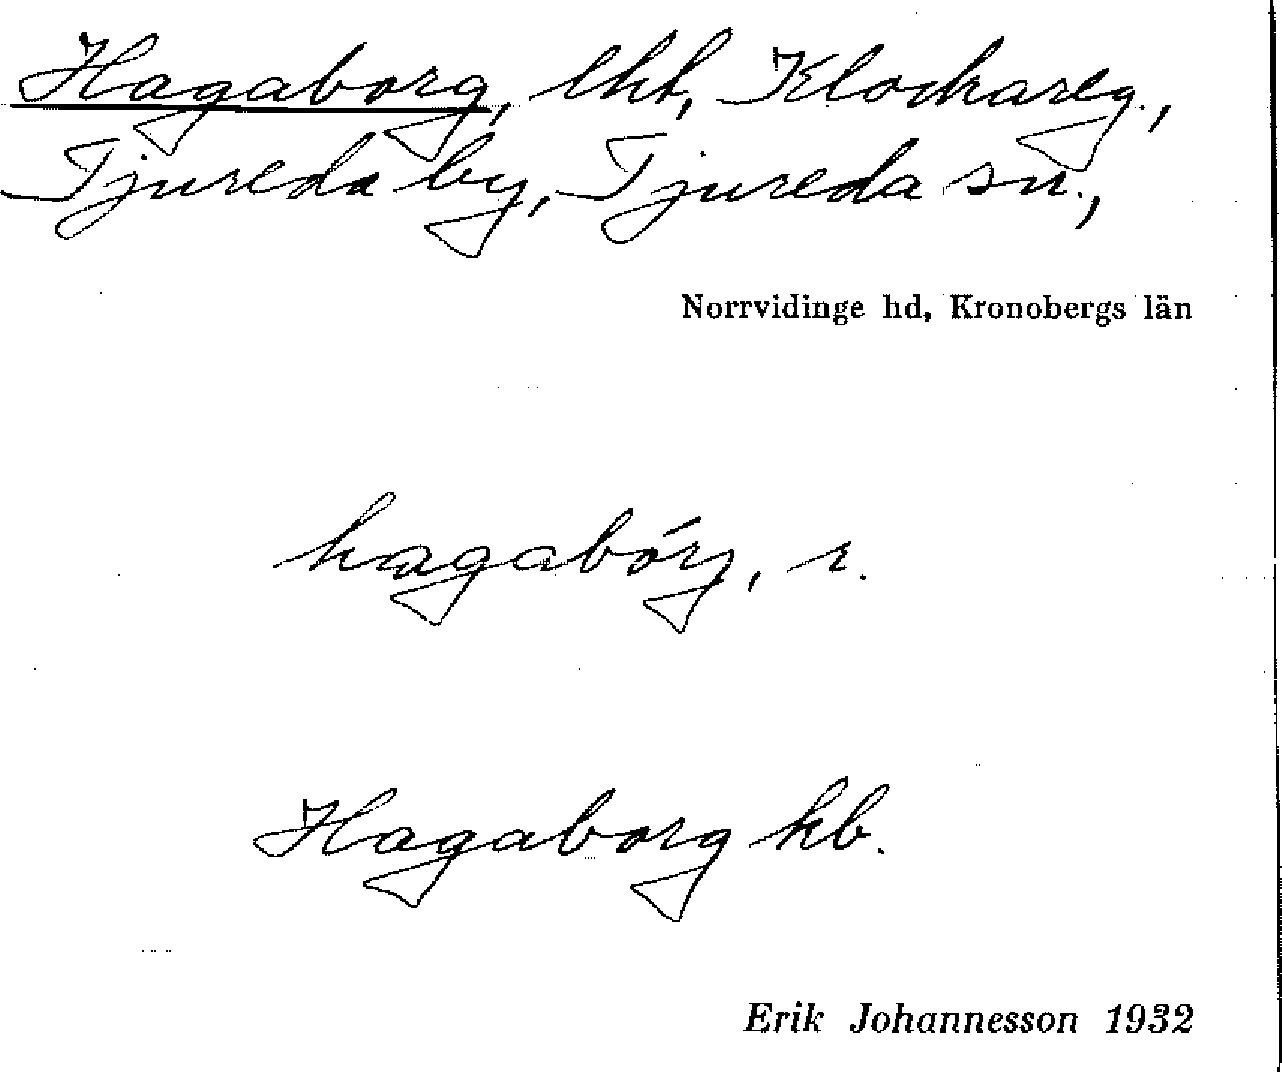 Hagaborg, lht, Klockareg.,
Tjureda by, Tjureda sn.,
Norrvidinge hd, Kronobergs län
hagabórg, r.
Hagaborg kb.
Erik Johannesson 1932